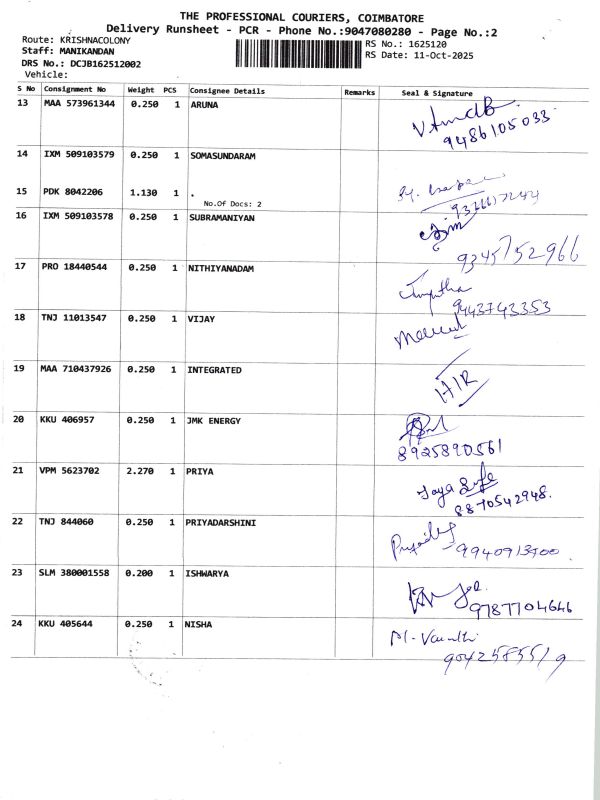 THE PROFESSIONAL COURIERS, COIMBATORE
Delivery Runsheet - PCR - Phone No.:9047080280 - Page No.:2
Route: KRISHNACOLONY
RS No.: 1625120
Staff: MANIKANDAN
RS Date: 11-Oct-2025
DRS No.: DCJB162512002
Vehicle:
S No Consignment No Weight PCS Consignee Details Remarks Seal & Signature
13 MAA 573961344 0.250 1 ARUNA
9486105033
14 IXM 509103579 0.250 1 SOMASUNDARAM
15 PDK 8042206 1.130 1 .
No.Of Docs: 2
16 IXM 509103578 0.250 1 SUBRAMANIYAN
9345752966
17 PRO 18440544 0.250 1 NITHIYANADAM
9443743353
18 TNJ 11013547 0.250 1 VIJAY
19 MAA 710437926 0.250 1 INTEGRATED
20 KKU 406957 0.250 1 JMK ENERGY
8925890561
21 VPM 5623702 2.270 1 PRIYA
8870542948.
22 TNJ 844060 0.250 1 PRIYADARSHINI
23 SLM 380001558 0.200 1 ISHWARYA
9787704646
24 KKU 405644 0.250 1 NISHA